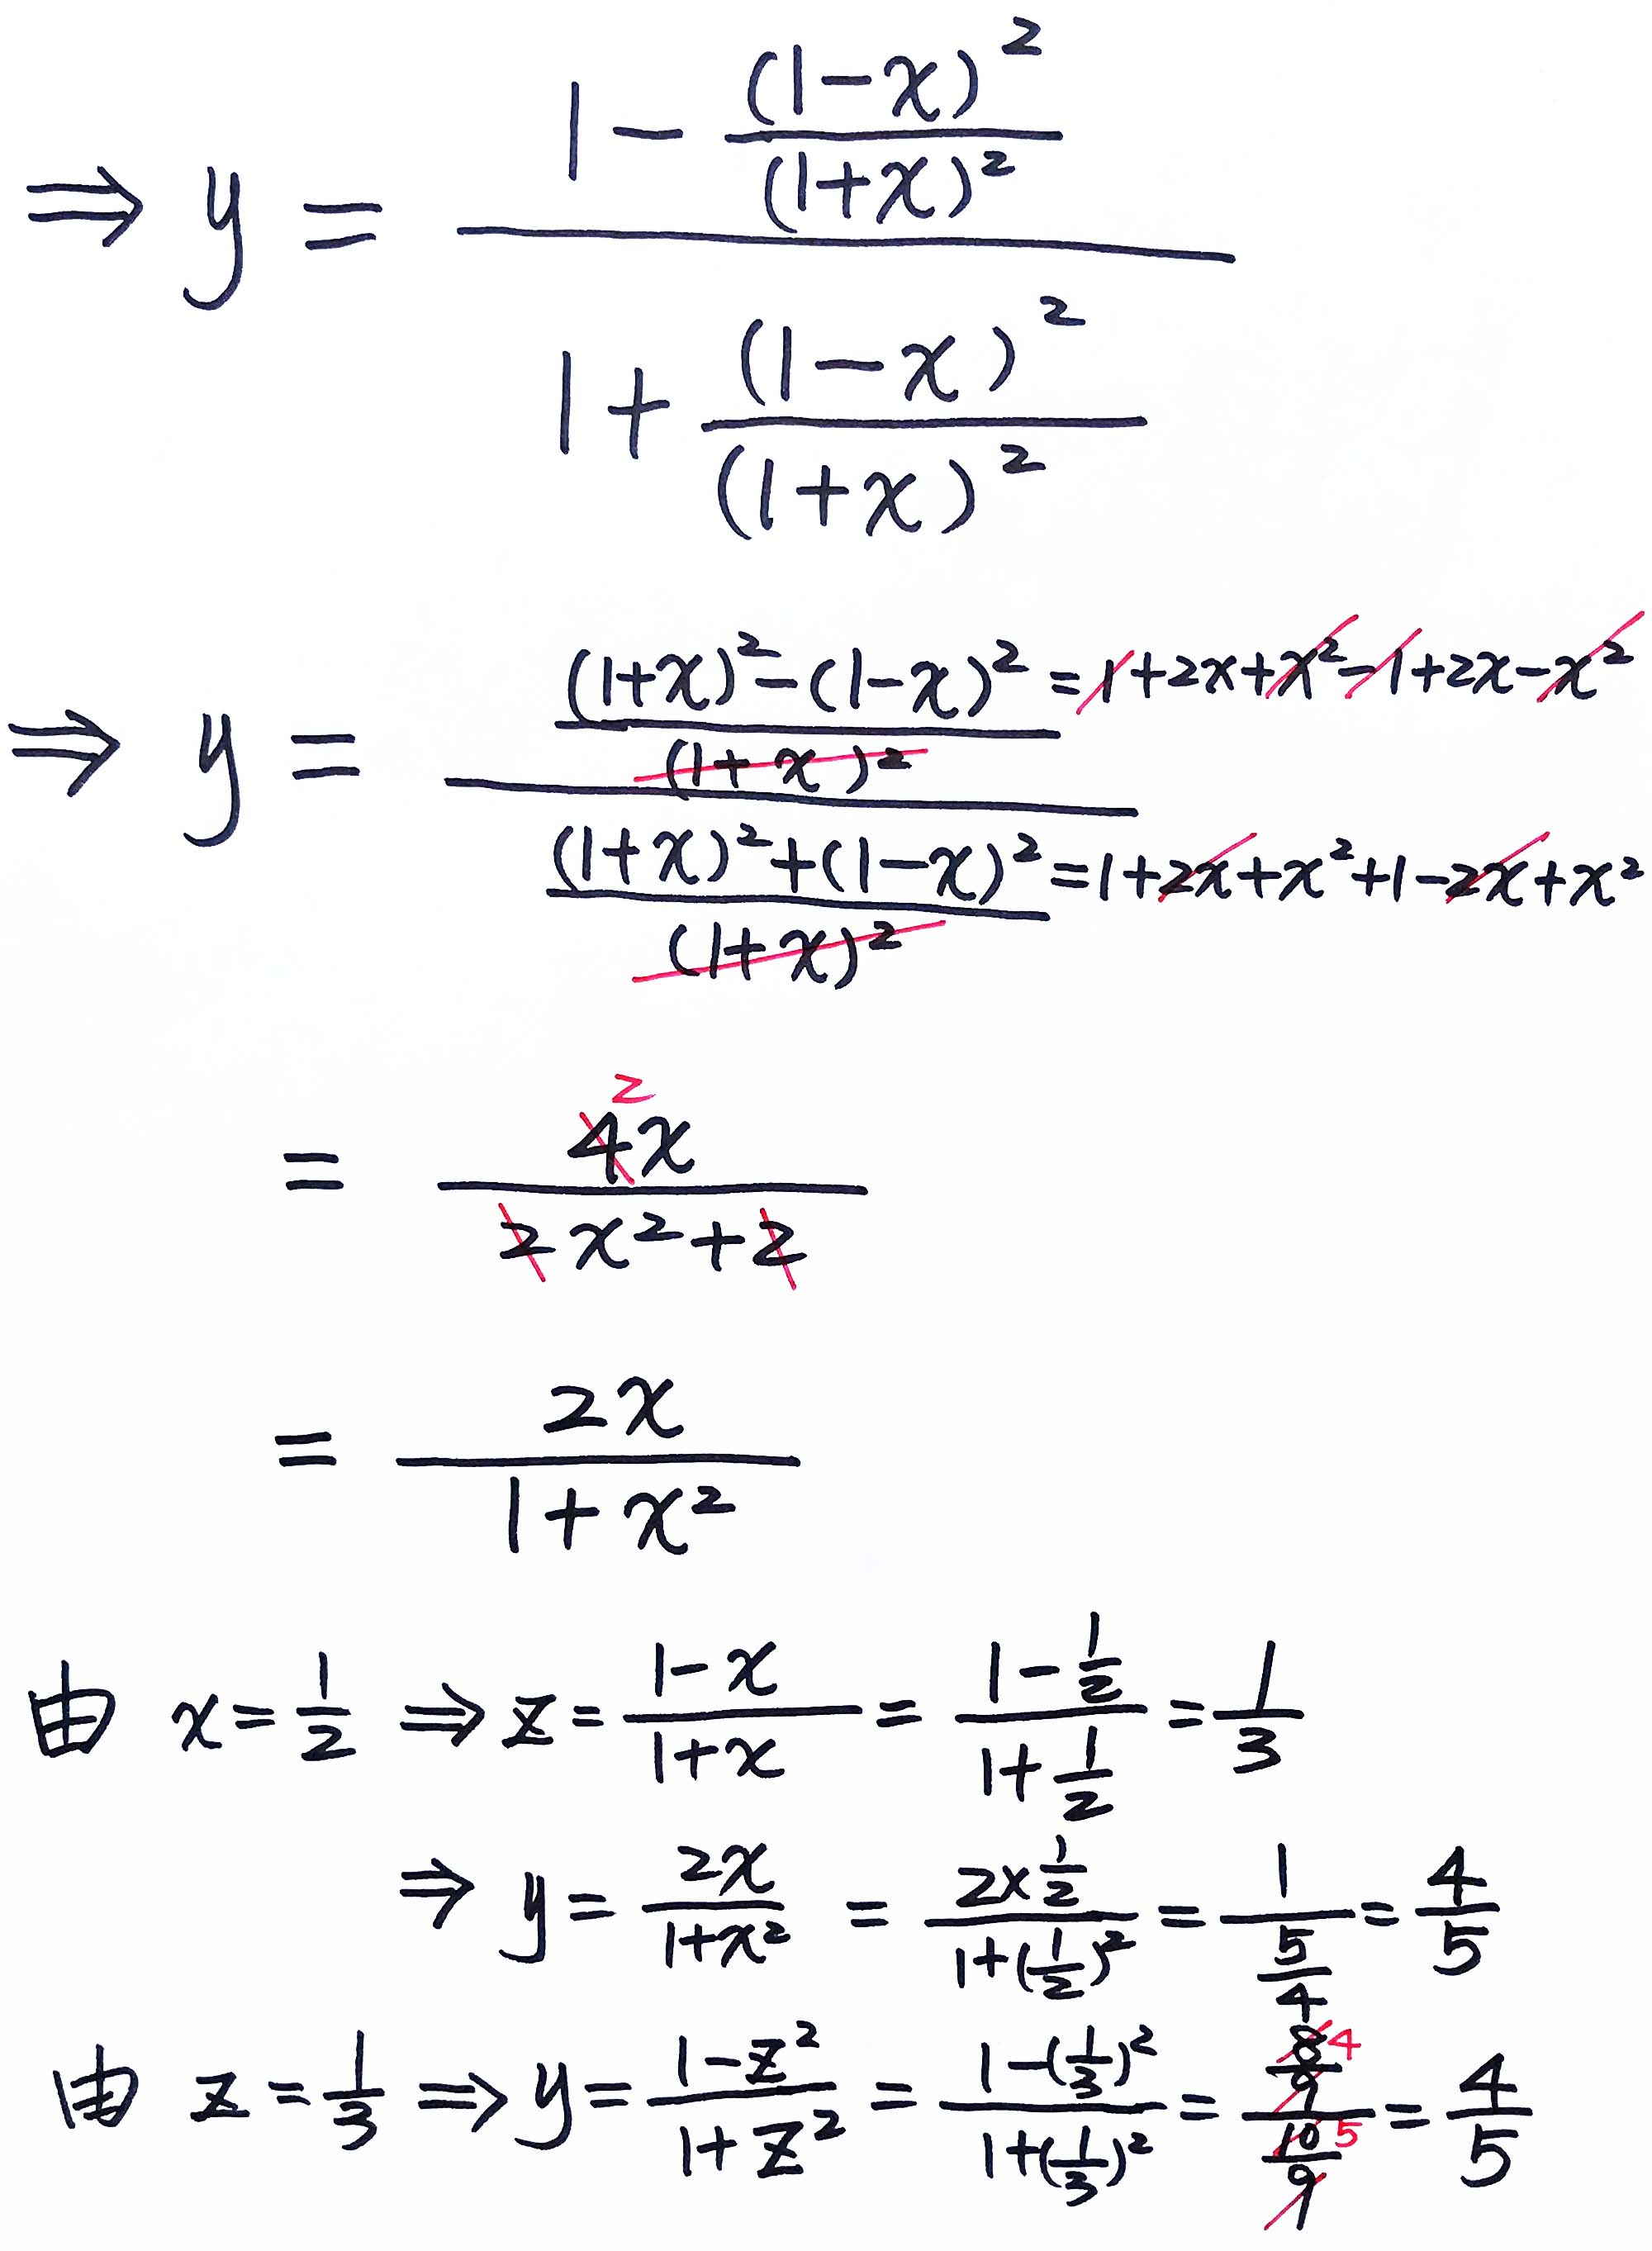 ⇒ y = \frac{1-\frac{(1-x)^2}{(1+x)^2}}{1+\frac{(1-x)^2}{(1+x)^2}}
⇒ y = \frac{\frac{(1+x)^2-(1-x)^2}{(1+x)^2}}{\frac{(1+x)^2+(1-x)^2}{(1+x)^2}}
= 1+2x+x^2-1+2x-x^2
= 1+2x+x^2+1-2x+x^2
2
= \frac{4x}{2x^2+2}
= \frac{2x}{1+x^2}
由 x = \frac{1}{2} ⇒ z = \frac{1-x}{1+x} = \frac{1-\frac{1}{2}}{1+\frac{1}{2}} = \frac{1}{3}
⇒ y = \frac{2x}{1+x^2} = \frac{2×\frac{1}{2}}{1+(\frac{1}{2})^2} = \frac{1}{\frac{5}{4}} = \frac{4}{5}
由 z = \frac{1}{3} ⇒ y = \frac{1-z^2}{1+z^2} = \frac{1-(\frac{1}{3})^2}{1+(\frac{1}{3})^2} = \frac{\frac{8}{9}}{\frac{10}{9}} = \frac{4}{5}
4
5